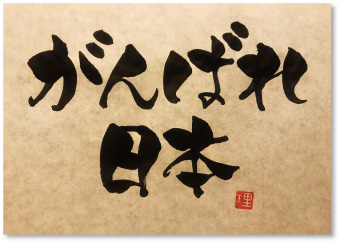 がんばれ
日本
理